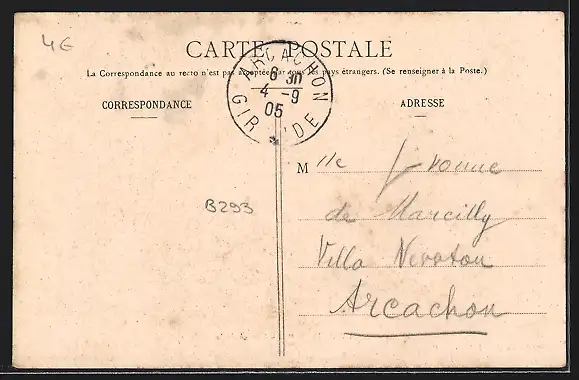 4€
CARTE POSTALE
La Correspondance au recto n'est pas acceptée par tous les pays étrangers. (Se renseigner à la Poste.)
ARCACHON
6 30
4 - 9
05
GIRONDE
CORRESPONDANCE
ADRESSE
M lle Yvonne
de Marcilly
Villa Newton
Arcachon
B293